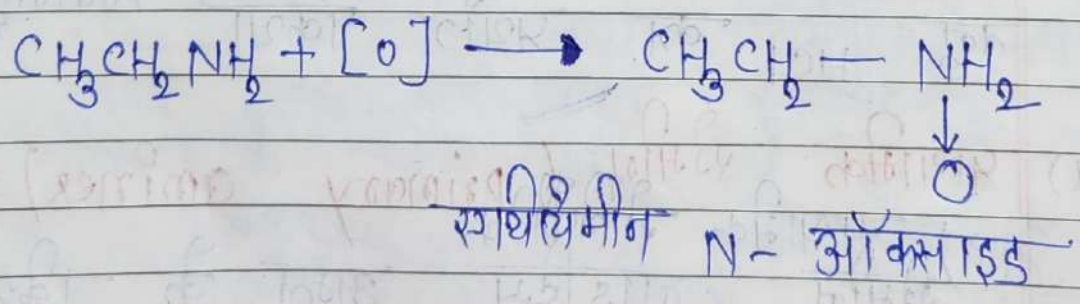 CH₃CH₂NH₂ + [O] → CH₃CH₂ — NH₂
↓
O
N- ऑक्साइड